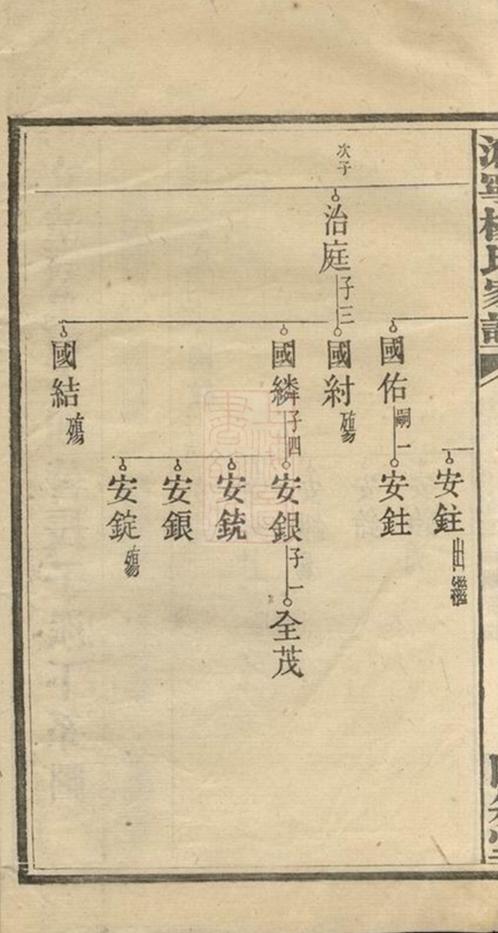 氏家譜
安鉒出繼
國佑嗣一
安鉒
次子
治庭子三
國紂殤
國繗子四
安銀子一
全茂
安銃
安鋃
安錠殤
國結殤